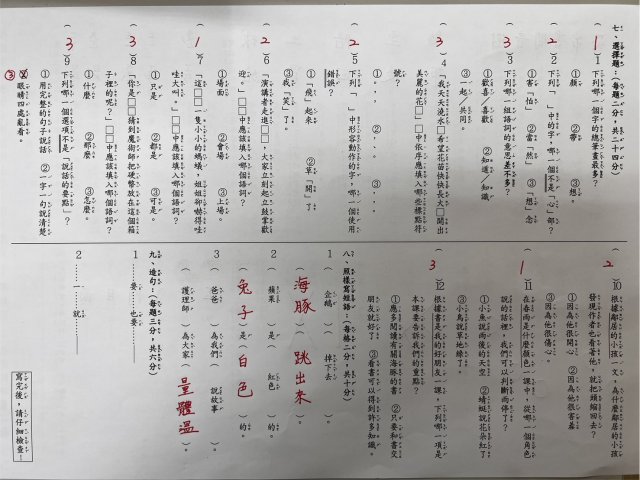 七、選擇題：(每題二分，共二十四分)
(1) 1 下列哪一個字的總筆畫最多？
①顏 ②帶 ③想。
(2) 2 下列「」中的字，哪一個不是「心」部？
①害「怕」 ②當「然」 ③「想」念
(3) 3 下列哪一組語詞的意思差不多？
①歡喜／喜歡 ②知道／知識
③一起／共同。
(3) 4 「我天天澆水，希望花苗快快長大□開出
美麗的花□」□中依序應填入哪些標點符
號？
(2) 5 下列「」中形容動作的字，哪一個使用
錯誤？
①「飛」起來 ②草「開」了
③我「笑」了。
(2) 6 「演講者走進□□，大家立刻起立鼓掌歡
迎。」□□中應該填入哪個語詞？
①場面 ②會場 ③上場。
(1) 7 「這□□一隻小小的螞蟻，姐姐卻嚇得哇
哇大叫。」□□中應該填入哪個語詞？
①只是 ②都是 ③可是。
(3) 8 「你是□□猜到魔術師把硬幣放在這個箱
子裡的呢？」□□中應該填入哪個語詞？
①什麼 ②那麼 ③怎麼。
(3) 9 下列哪一個選項不是「說話的要點」？
①用完整的句子說話 ②一字一句說清楚
③眼睛四處亂看。
(2) 10 根據鄰居的小孩一文，為什麼鄰居的小孩
發現作者也看著他，就把頭縮回去？
①因為他很開心 ②因為他很害羞
③因為他很傷心。
(1) 11 在春雨是什麼顏色一課中，從哪一個角色
說的話裡，我們可以判斷雨停了？
①小魚說雨後的天空 ②蜻蜓說花朵紅了
③小鳥說草地綠了。
(3) 12 根據書是我的好朋友一課，下列哪一項是
本課要告訴我們的重點？
①應多閱讀有關海豚的書 ②只要和書交
朋友就好了 ③看書可以得到許多知識。
八、照樣寫短語：(每格二分，共十分)
1 (企鵝)(掉下去)
(海豚)(跳出來)
2 (蘋果)是(紅色)的。
(兔子)是(白色)的。
3 (爸爸)為我們(說故事)。
(護理師)為大家(量體溫)。
九、造句：(每題三分，共六分)
1 ……要……也要……
2 ……一……就……
寫完後，請仔細檢查！